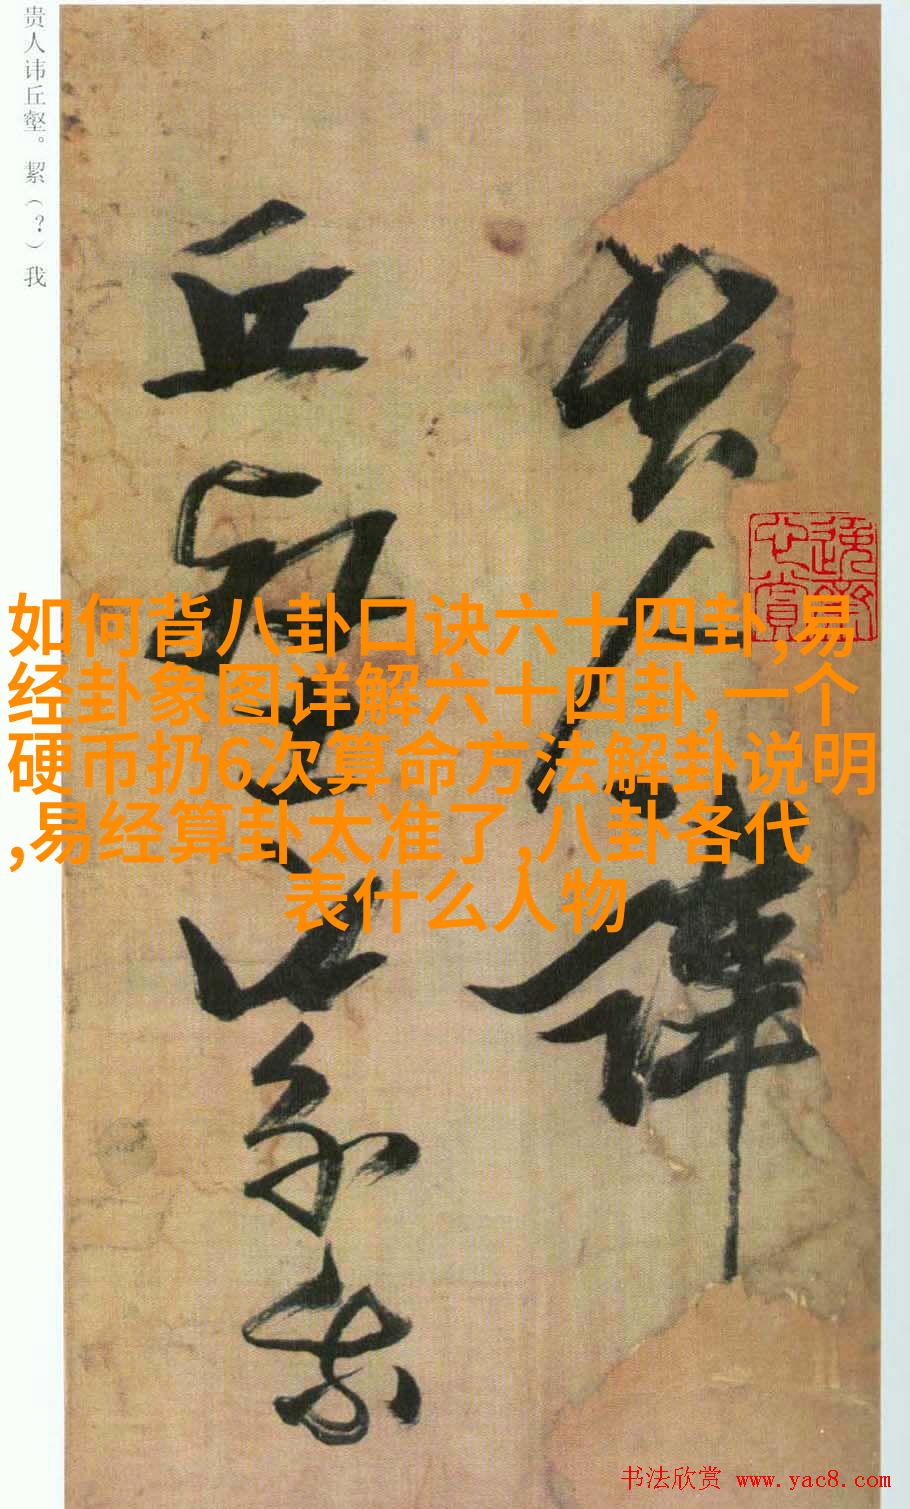 贵人讳丘壑。絜（？）我
貴人諱
丘壑我
如何背八卦口诀六十四卦,易
经卦象图详解六十四卦,一个
硬币扔6次算命方法解卦说明
,易经算卦太准了,八卦各代
表什么人物
书法欣赏 www.yac8.com